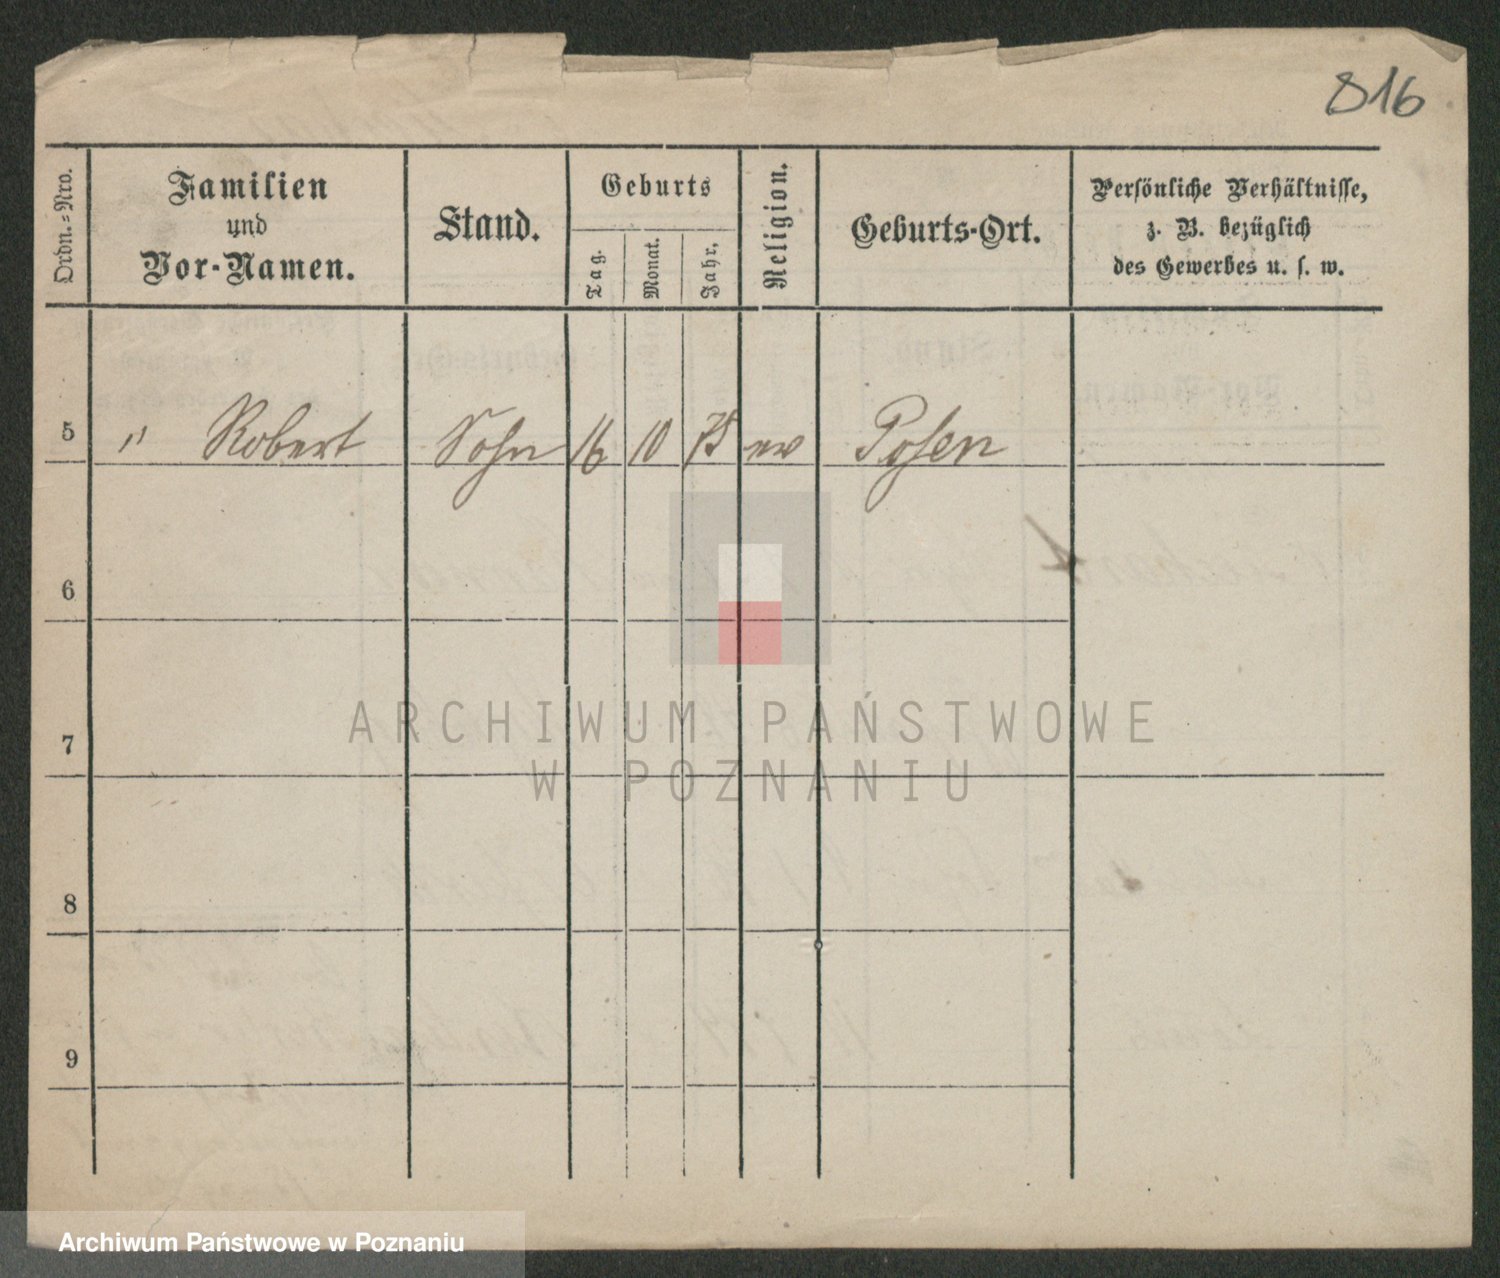 816
Ordn.-Nro.
Familien
und
Vor-Namen.
Stand.
Geburts
Tag.
Monat.
Jahr.
Religion.
Geburts-Ort.
Persönliche Verhältnisse,
z. B. bezüglich
des Gewerbes u. s. w.
5 " Robert Sohn 16 10 75 ev Posen
6
7
8
9
ARCHIWUM PAŃSTWOWE
W POZNANIU
Archiwum Państwowe w Poznaniu